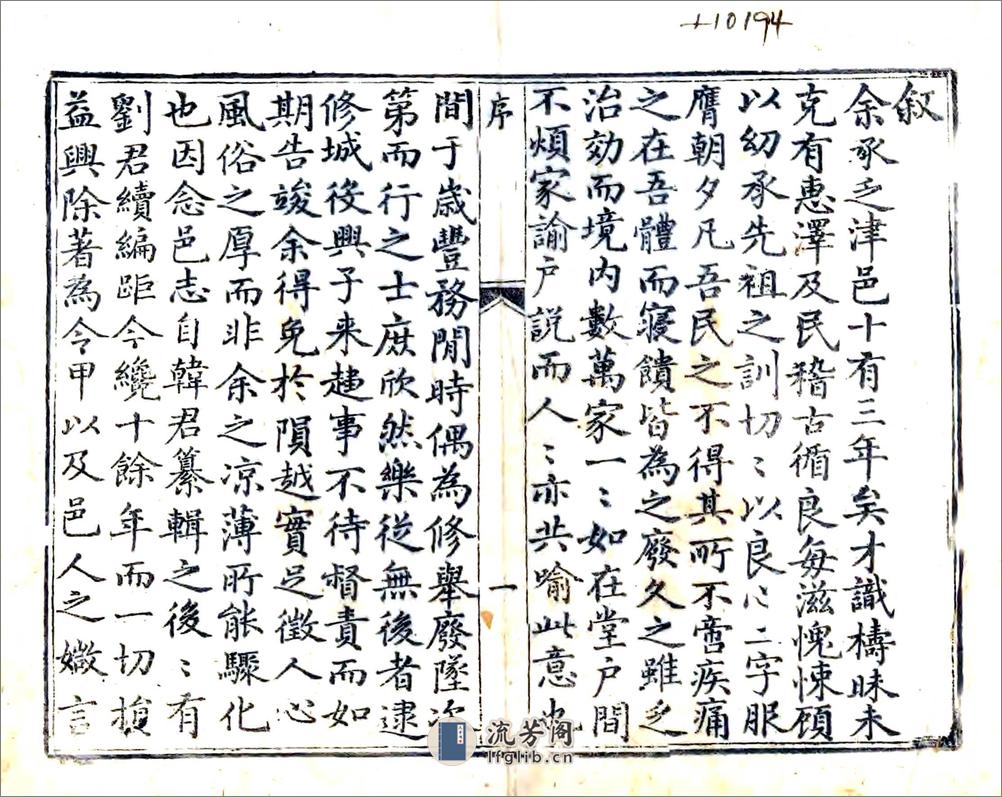 +10194
叙
余承乏津邑十有三年矣才識檮昧未
克有惠澤及民稽古循良每滋愧悚顧
以幼承先祖之訓切〻以良心二字服
膺朝夕凡吾民之不得其所不啻疾痛
之在吾體而寢饋皆為之廢久之雖乏
治効而境內數萬家一〻如在堂戶間
不煩家諭戶說而人〻亦共喻此意也
序
一
間于歲豐務閒時偶為修舉廢墜次
第而行之士庶欣然樂從無後者逮
修城役興子来趨事不待督責而如
期告竣余得免於隕越實足徵人心
風俗之厚而非余之凉薄所能驟化
也因念邑志自韓君纂輯之後〻有
劉君續編距今纔十餘年而一切損
益興除著為令甲以及邑人之嫩言
流芳阁
lfglib.cn